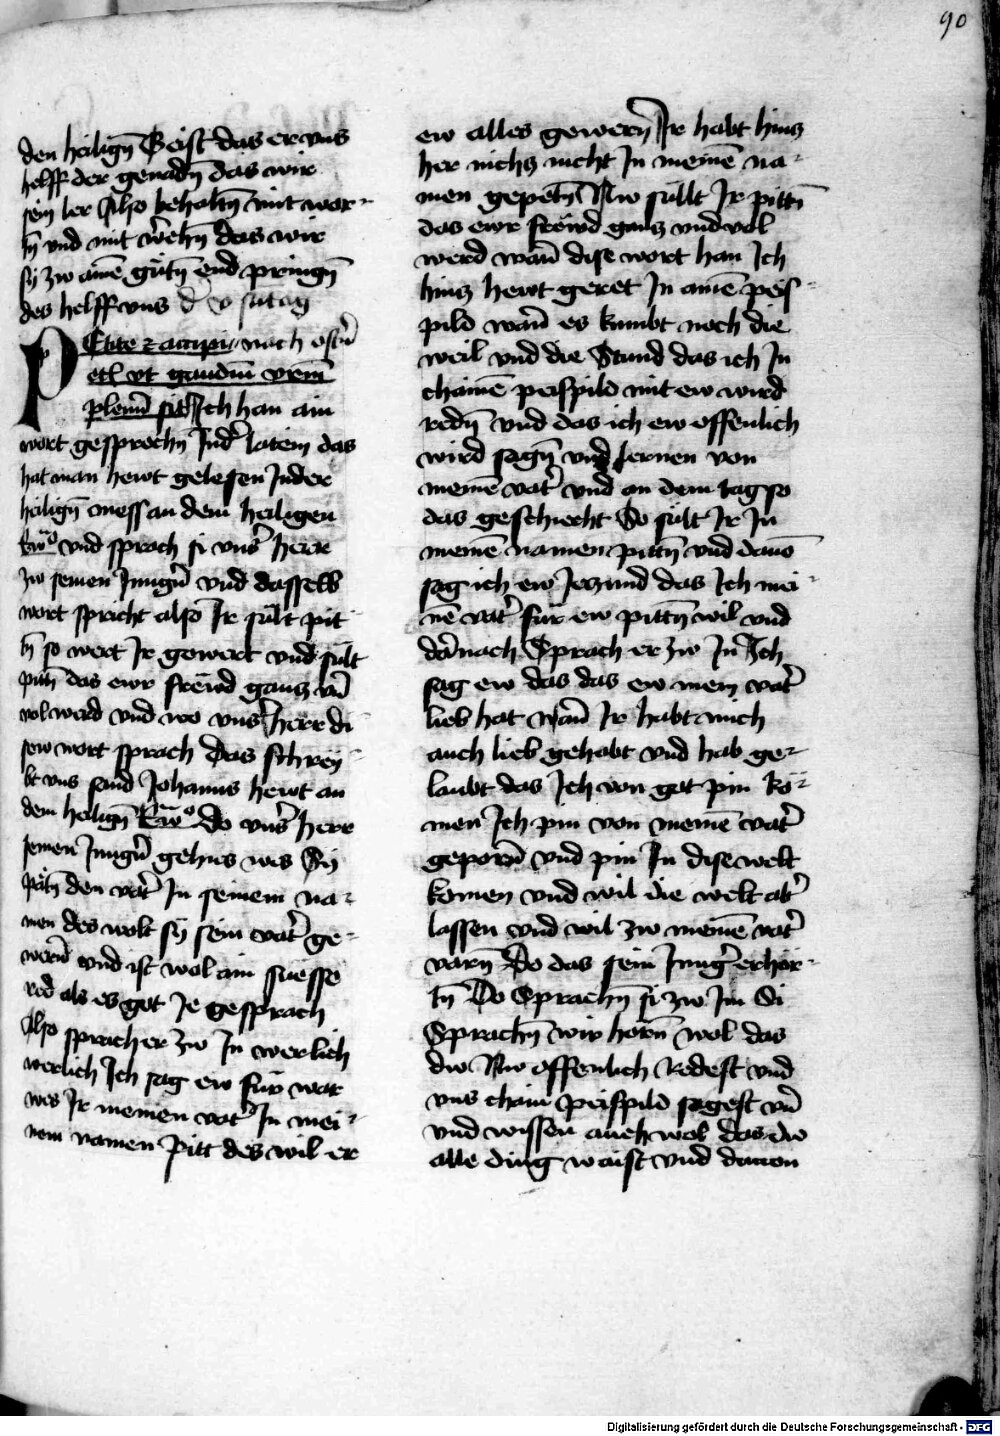 90
den heilign̄ Geist das er vns
helff der genadn̄ das wir
sein ler Also behaltn̄ mit wor-
tn̄ vnd mit werchn̄ das wir
sy zw ainē gůtn̄ end pringn̄
des helff vns
Petite ⁊ accipi nach ostn̄
etc̄ vt gaudiū vrm̄
plenū sit Ich han ain
wort gesprochn̄ Jnd' latein das
hat man hewt gelesen Jnder
heilign̄ mess an dem heiligen
Ew̄o vnd sprach si vns' herr
zw seinen Jungn̄ vnd dasselb
wort spricht also Ir sůlt pit
tn̄ so wert Ir gewert vnd sůlt
pittn̄ das ewr frewd gantz vn̄
vol werd vnd wo vns' herr di
sew wort sprach das schrey
bt vns sand Johanns hewt an
dem heilign̄ Ew̄o Do vns' herr
seinen Jungn̄ gehies wes Sy
pätn̄ den vat' Jn seinem na-
men des wolt sy sein vat' ge-
wern̄ vnd ist wol ain suesse
red als es got Je gesprach
Also sprach er zw Jn werlich
werlich Ich sag ew für war
wes Ir meinen vat' Jn mei-
nem namen pitt des wil er
ew alles gewern̄ Ir habt hintz
her nichtz nicht Jn meinē na-
men gepetn̄ Nw sůllt Ir pittn̄
das ewr frewd gantz vnd vol
werd wan̄ dise wort han Ich
hintz hewt geret Jn ainē peis-
pild wan̄ es kumbt noch die
weil vnd die Stund das ich Jn
chainē peispild mit ew wird
redn̄ vnd das ich ew offenlich
wird sagn̄ vnd lernen von
meinē vat' vnd an dem tag so
das geschiecht So sůlt Ir Jn
meinē namen pittn̄ vnd dauō
sag ich ew Jetzund das Ich mei-
nē vat' für ew pittn̄ wil vnd
darnach Sprach er zw Jn Ich
sag ew das das ew mein vat'
lieb hat wan̄ Ir habt mich
auch lieb gehabt vnd hab ge-
laubt das Ich von got pin kō-
men Ich pin von meinē vat'
geporn̄ vnd pin Jn dise welt
komen vnd wil die welt ab'
lassen vnd wil zw meinē vat'
varn̄ Do das sein Jung' erhör-
tn̄ Do Sprachn̄ si zw Jm Si
Sprachn̄ wir hörn̄ wol das
dw Nw offenlich Redest vnd
vns chain peispild sagest vn̄
vnd wissen auch wol das dw
alle ding waist vnd dauon
Digitalisierung gefördert durch die Deutsche Forschungsgemeinschaft - DFG